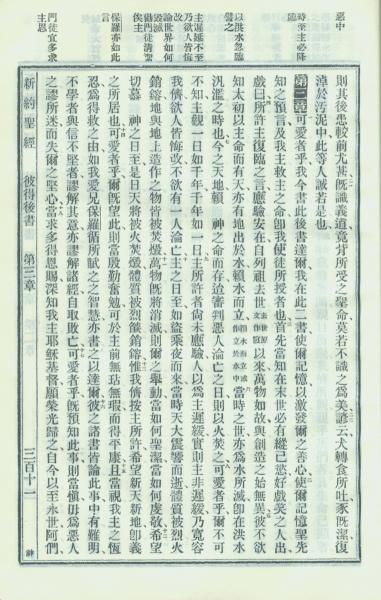 惡中
時至主必降臨
以洪水忽臨譬之
主遲延不至乃欲人皆悔改
論世界如何
勸門徒清潔
保羅亦如此言
門徒宜多求主恩
則其後患較前尤甚既識義道竟背所受之聖命莫若不識之爲美諺云犬轉食所吐豕既潔復
滓於汚泥中此等人誠若是也
第三章 可愛者乎我今書此後書達爾我在此二書使爾記憶以激發爾之善心使爾記憶聖先
知之預言及我主救主之命卽我使徒所授者也首先當知在末世必有縱己慾好戲笑之人出
戲曰所許主復臨之言應驗安在自列祖去世以來萬物如故與創造之始無異彼不欲
知太初以主命而有天亦有地出於水賴水而立當時之世亦爲水所滅卽在洪水
汎濫之時也今之天地賴 神之命而存迨審判惡人淪亡之日則以火焚之可愛者乎爾不可
不知主觀一日如千年千年如一日主所許者尚未應驗人以爲主遲緩實則主非遲緩乃寬容
我儕欲人皆悔改不欲有一人淪亡主之日至如盜乘夜而來當時天大震響而逝體質被烈火
銷鎔地與地上造作之物皆被焚燬萬物既將消滅則爾之舉動當如何聖潔當如何虔敬希望
切慕 神之日至是日天將被火焚燬體質被烈燄銷鎔惟我儕按主所許希望新天新地卽義
之所居也可愛者乎爾既望此則當殷勤奮勉可於主前無玷無瑕而得平康且當視我主之恆
忍爲得救之由如我愛兄保羅循所賦之之智慧亦書之以達爾彼之諸書皆論此事中有難明
不學者與信不堅者謬解其意亦謬解諸經自取敗亡可愛者乎爾既預知此事則當愼毋爲惡人
之謬所迷而失爾之堅心當求多得恩賜深知我主耶穌基督願榮光歸之自今以至永世阿們
新約聖經 彼得後書 第三章 三百十二